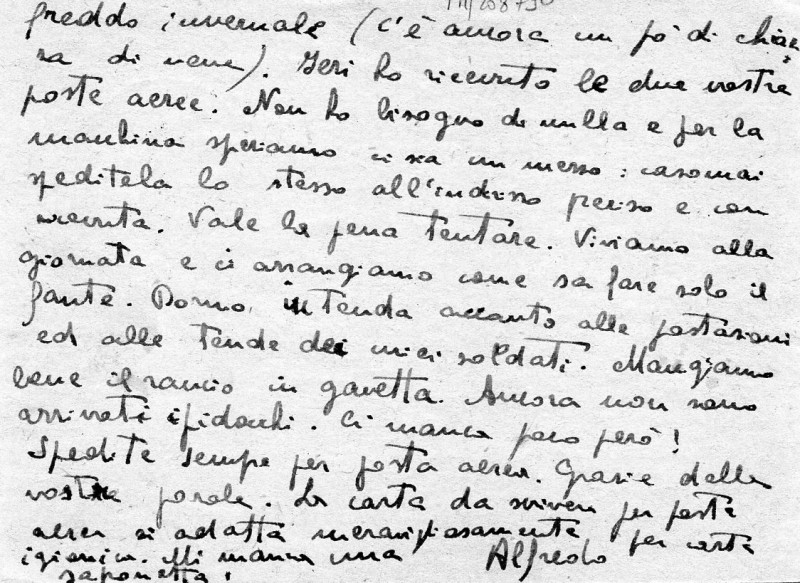 freddo invernale (c'è ancora un pò di chiaz
za di neve). Ieri ho ricevuto le due vostre
poste aeree. Non ho bisogno di nulla e per la
macchina speriamo ci sia un messo: casomai
speditela lo stesso all'indirizzo preciso e con
ricevuta. Vale la pena tentare. Viviamo alla
giornata e ci arrangiamo come sa fare solo il
fante. Dormo in tenda accanto alle postazioni
ed alle tende dei miei soldati. Mangiamo
bene il rancio in gavetta. Ancora non sono
arrivati i pidocchi. Ci manca poco però!
Spedite sempre per posta aerea. Grazie delle
vostre parole. La carta da scrivere per posta
aerea si adatta meravigliosamente per carta
igienica. Mi manca una Alfredo
saponetta!